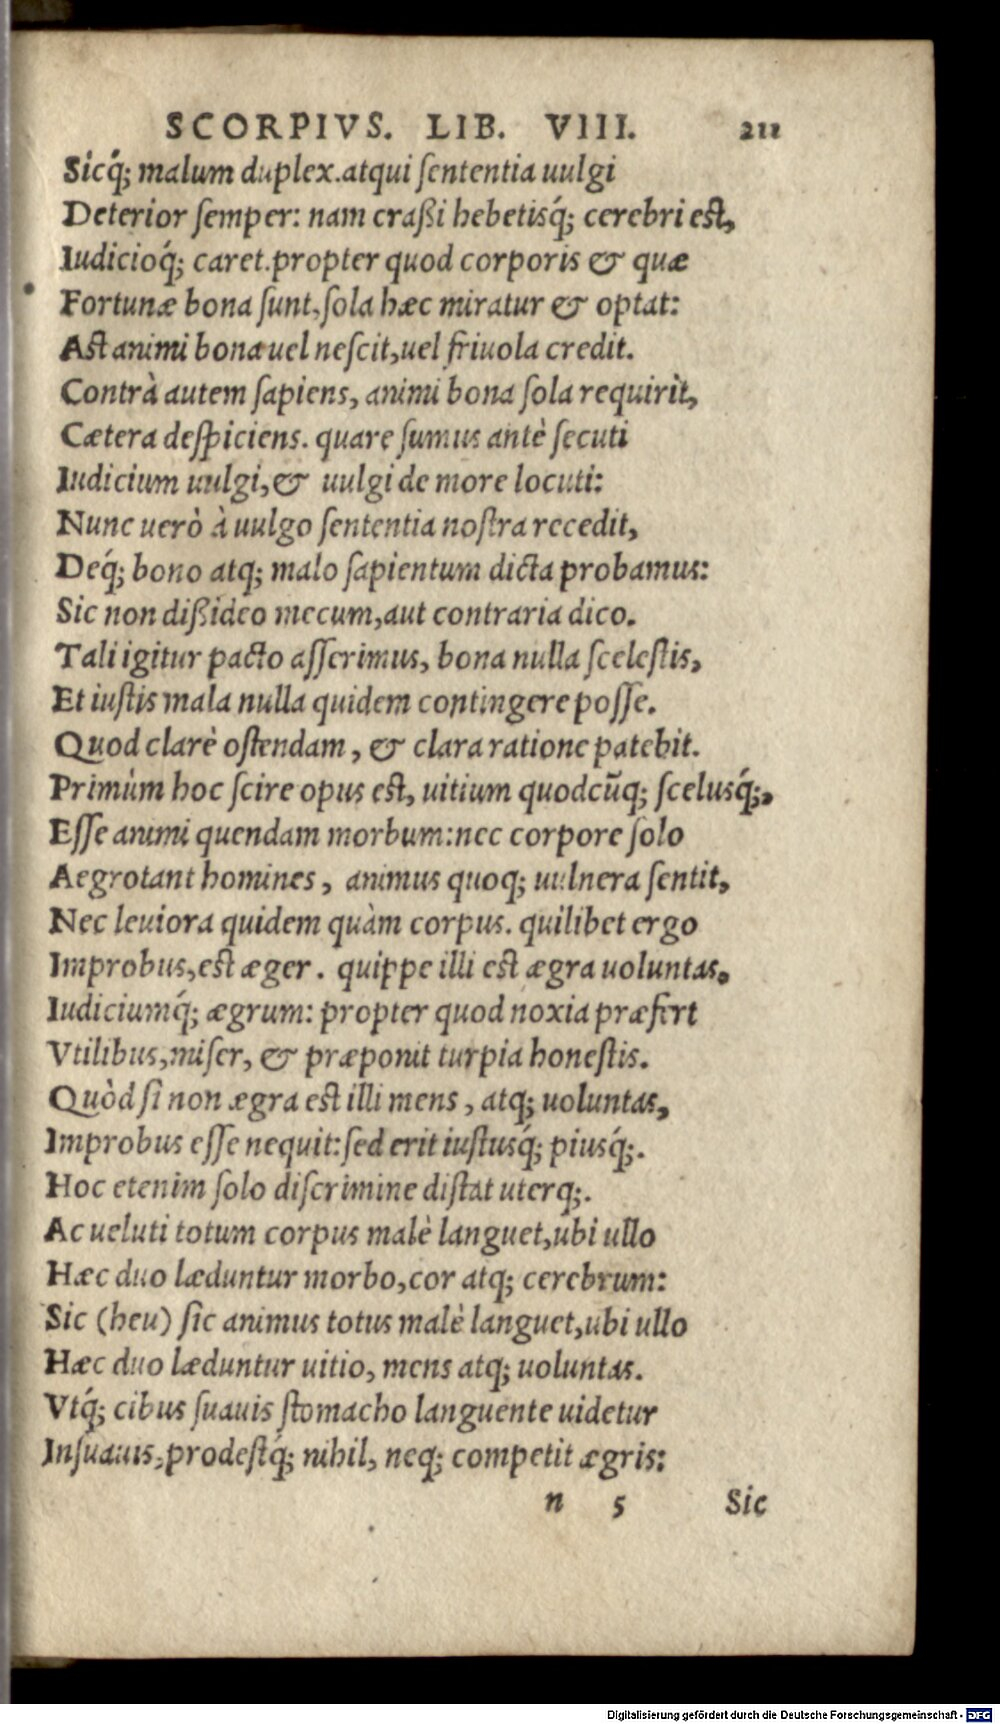 SCORPIVS. LIB. VIII. 211
Sicq́; malum duplex.atqui ſententia uulgi
Deterior ſemper: nam craßi hebetisq́; cerebri est,
Iudicioq́; caret.propter quod corporis & quæ
Fortunæ bona ſunt,ſola hæc miratur & optat:
Ast animi bona uel neſcit,uel friuola credit.
Contrà autem ſapiens, animi bona ſola requirit,
Cætera deſpiciens. quare ſumus antè ſecuti
Iudicium uulgi,& uulgi de more locuti:
Nunc uerò à uulgo ſententia noſtra recedit,
Deq́; bono atq; malo ſapientum dicta probamus:
Sic non dißideo mecum,aut contraria dico.
Tali igitur pacto aſſerimus, bona nulla ſceleſtis,
Et iuſtis mala nulla quidem contingere poſſe.
Quod clarè oſtendam, & clara ratione patebit.
Primùm hoc ſcire opus est, uitium quodcūq; ſcelusq́;,
Eſſe animi quendam morbum:nec corpore ſolo
Aegrotant homines, animus quoq; uulnera ſentit,
Nec leuiora quidem quàm corpus. quilibet ergo
Improbus,est æger. quippe illi est ægra uoluntas,
Iudiciumq́; ægrum: propter quod noxia præfert
Vtilibus,miſer, & præponit turpia honeſtis.
Quòd ſi non ægra est illi mens, atq; uoluntas,
Improbus eſſe nequit:ſed erit iuſtusq́; piusq́;.
Hoc etenim ſolo diſcrimine diſtat uterq;.
Ac ueluti totum corpus malè languet,ubi ullo
Hæc duo læduntur morbo,cor atq; cerebrum:
Sic (heu) ſic animus totus malè languet,ubi ullo
Hæc duo læduntur uitio, mens atq; uoluntas.
Vtq́; cibus ſuauis ſtomacho languente uidetur
Inſuauis,prodeſtq́; nihil, neq; competit ægris:
n 5 Sic
Digitalisierung gefördert durch die Deutsche Forschungsgemeinschaft - DFG